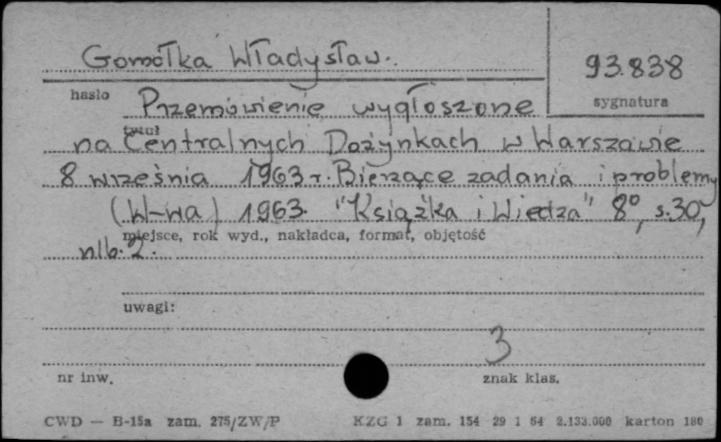 Gomołka Władysław.
93.838
hasło
sygnatura
Przemówienie wygłoszone
tytuł
na Centralnych Dożynkach w Warszawie
8 września 1963 r. Bieżące zadania i problemy
(W-wa) 1963. "Książka i Wiedza" 8°, s.30,
miejsce, rok wyd., nakładca, format, objętość
nlb. 2.
uwagi:
3
nr inw.
znak klas.
CWD — B-15a zam. 275/ZW/P KZG 1 zam. 154 29 1 64 2.133.000 karton 180